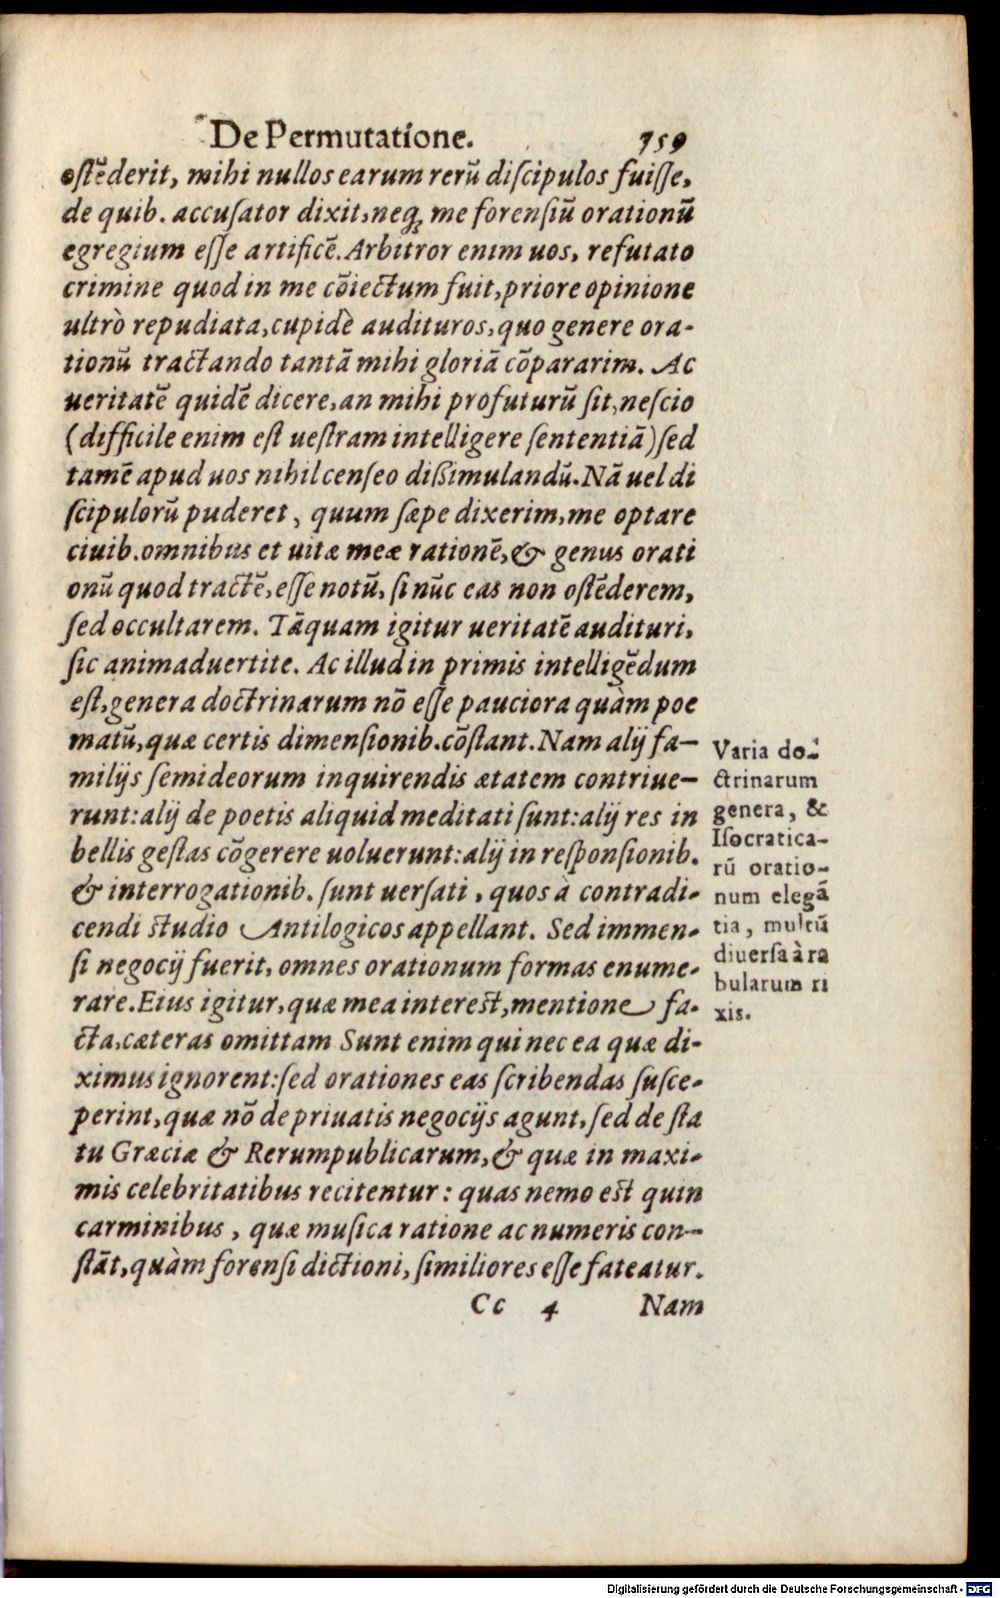 De Permutatione. 759
ostēderit, mihi nullos earum rerū discipulos fuisse,
de quib. accusator dixit, neq; me forensiū orationū
egregium esse artificē. Arbitror enim uos, refutato
crimine quod in me cōiectum fuit, priore opinione
ultrò repudiata, cupidè audituros, quo genere ora-
tionū tractando tantā mihi gloriā cōpararim. Ac
ueritatē quidē dicere, an mihi profuturū sit, nescio
(difficile enim est uestram intelligere sententiā) sed
tamē apud uos nihil censeo dißimulandū. Nā uel di
scipulorū puderet, quum sæpe dixerim, me optare
ciuib. omnibus et uitæ meæ rationē, & genus orati
onū quod tractē, esse notū, si nūc eas non ostēderem,
sed occultarem. Tāquam igitur ueritatē audituri,
sic animaduertite. Ac illud in primis intelligēdum
est, genera doctrinarum nō esse pauciora quàm poe
matū, quæ certis dimensionib. cōstant. Nam alij fa-
milijs semideorum inquirendis ætatem contriue-
runt: alij de poetis aliquid meditati sunt: alij res in
bellis gestas cōgerere uoluerunt: alij in responsionib.
& interrogationib. sunt uersati, quos à contradi-
cendi studio Antilogicos appellant. Sed immen-
si negocij fuerit, omnes orationum formas enume-
rare. Eius igitur, quæ mea interest, mentione fa-
cta, cæteras omittam Sunt enim qui nec ea quæ di-
ximus ignorent: sed orationes eas scribendas susce-
perint, quæ nō de priuatis negocijs agunt, sed de sta
tu Græciæ & Rerumpublicarum, & quæ in maxi-
mis celebritatibus recitentur: quas nemo est quin
carminibus, quæ musica ratione ac numeris con-
stāt, quàm forensi dictioni, similiores esse fateatur.
Cc 4 Nam
Varia do-
ctrinarum
genera, &
Isocratica-
rū oratio-
num elegā
tia, multū
diuersa à ra
bularum ri
xis.
Digitalisierung gefördert durch die Deutsche Forschungsgemeinschaft - DFG